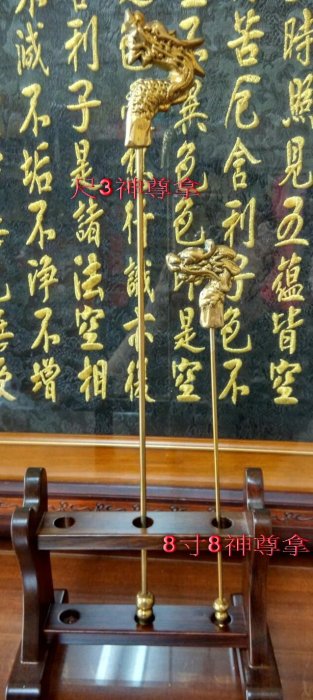 時照見五蘊皆空
苦厄舍利子色不
異色色即是空
行識亦復
利子是諸法空相
滅不垢不淨不增
尺3神尊拿
8寸8神尊拿